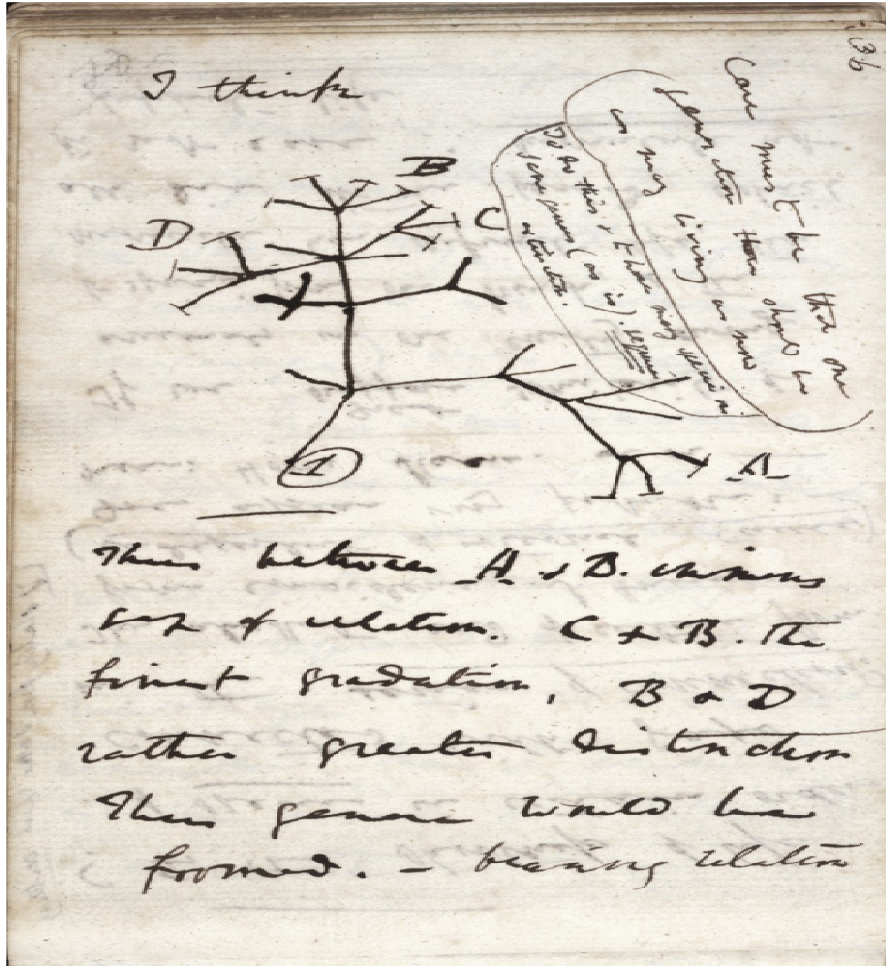 36
I think
Case must be that one
generation then should be
as many living as now
To do this & to have many species in
same genus (as is). requires
extinction.
B
D
C
A
1
Thus between A & B. immens
gap of relation. C & B. The
finest gradation, B & D
rather greater distinction
Thus genera would be
formed. — bearing relation